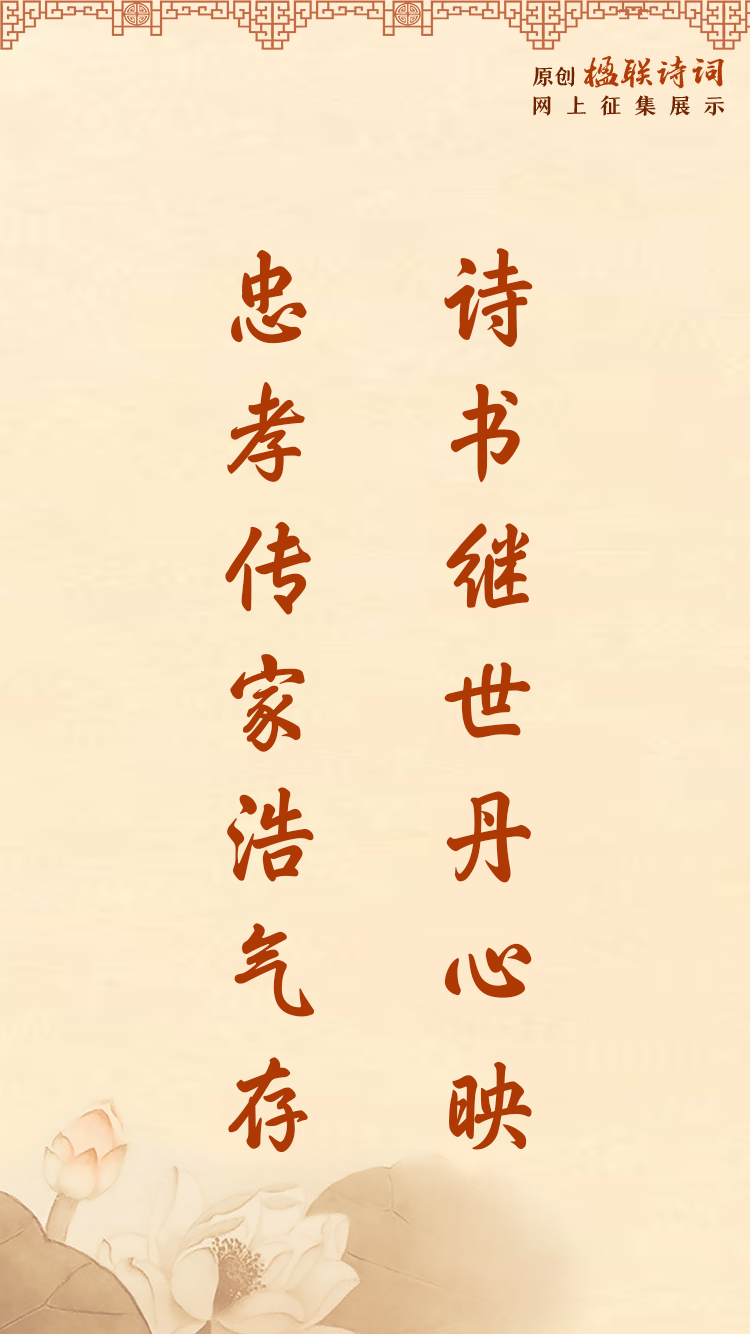 原创 楹联诗词
网上征集展示
诗书继世丹心映
忠孝传家浩气存